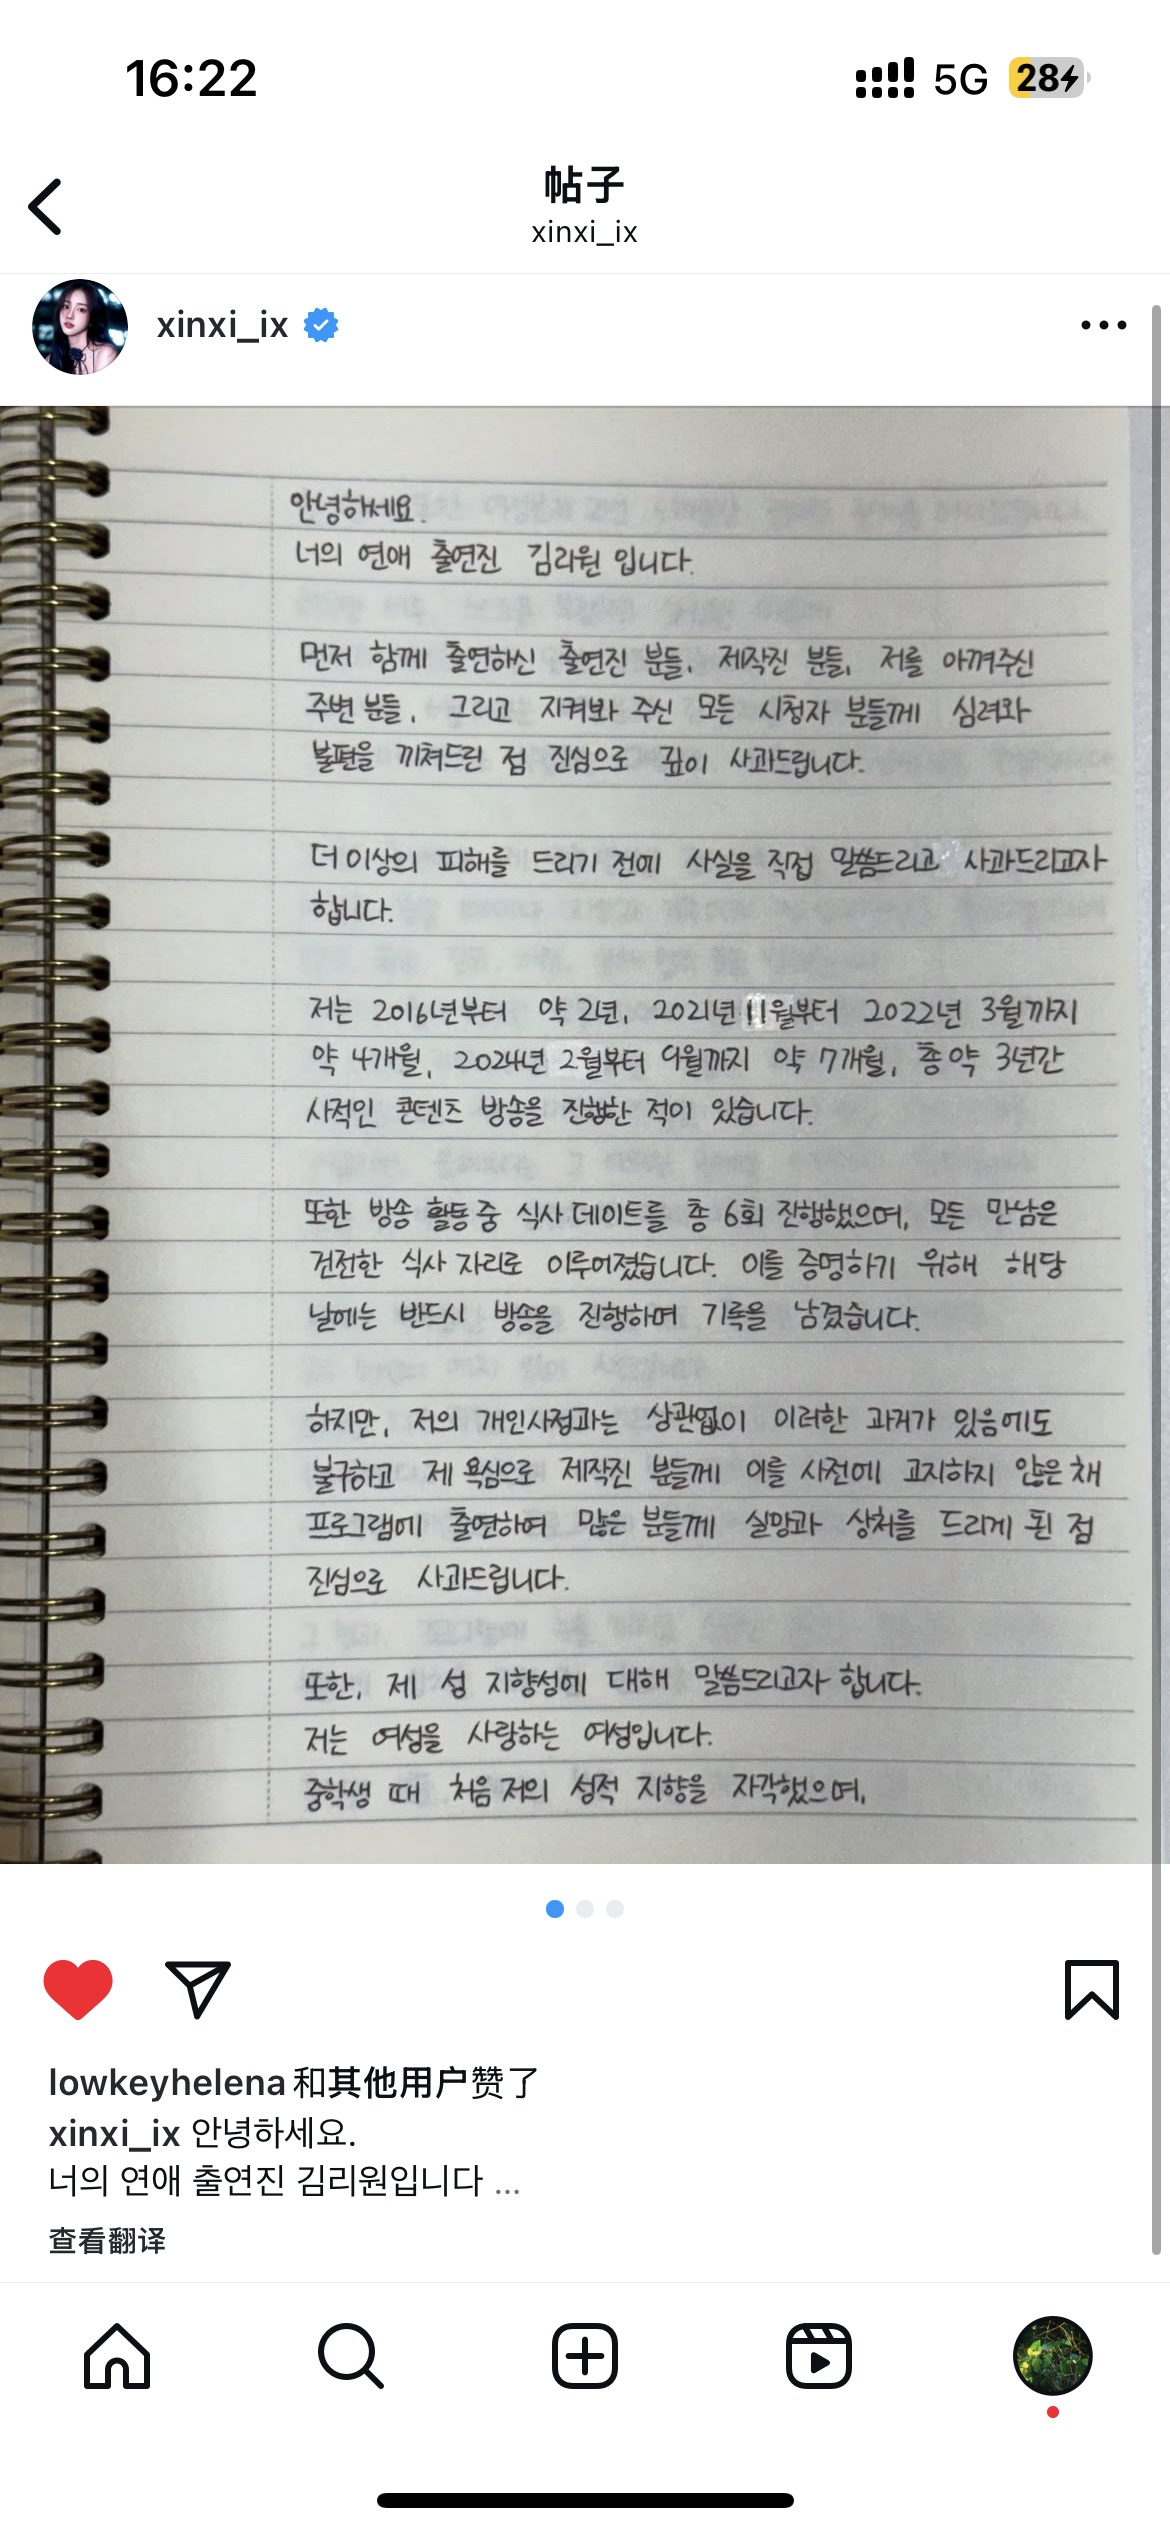 16:22
5G 28
帖子
xinxi_ix
xinxi_ix
안녕하세요.
너의 연애 출연진 김리원 입니다.
먼저 함께 출연하신 출연진 분들, 제작진 분들, 저를 아껴주신
주변 분들, 그리고 지켜봐 주신 모든 시청자 분들께 심려와
불편을 끼쳐드린 점 진심으로 깊이 사과드립니다.
더 이상의 피해를 드리기 전에 사실을 직접 말씀드리고 사과드리고자
합니다.
저는 2016년부터 약 2년, 2021년 11월부터 2022년 3월까지
약 4개월, 2024년 2월부터 9월까지 약 7개월, 총 약 3년간
사적인 콘텐츠 방송을 진행한 적이 있습니다.
또한 방송 활동 중 식사 데이트를 총 6회 진행했으며, 모든 만남은
건전한 식사 자리로 이루어졌습니다. 이를 증명하기 위해 해당
날에는 반드시 방송을 진행하며 기록을 남겼습니다.
하지만, 저의 개인사정과는 상관없이 이러한 과거가 있음에도
불구하고 제 욕심으로 제작진 분들께 이를 사전에 고지하지 않은 채
프로그램에 출연하여 많은 분들께 실망과 상처를 드리게 된 점
진심으로 사과드립니다.
또한, 제 성 지향성에 대해 말씀드리고자 합니다.
저는 여성을 사랑하는 여성입니다.
중학생 때 처음 저의 성적 지향을 자각했으며,
lowkeyhelena和其他用户赞了
xinxi_ix 안녕하세요.
너의 연애 출연진 김리원입니다 ...
查看翻译